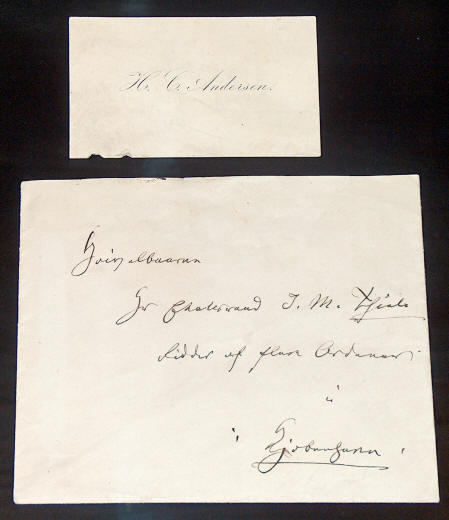 H. C. Andersen.
Høivelbaarne
Hr Etatsraad J. M. Thiele
Ridder af flere Ordener.
i
Kjøbenhavn.